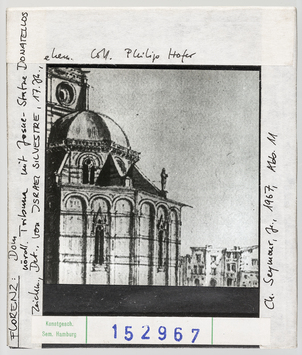 ehem. Coll. Philip Hofer
FLORENZ: Dom
nördl. Tribuna mit Josue-Statue DONATELLOS
Zeichn., Det., von ISRAEL SILVESTRE, 17. Jh.,
Ch. Seymour, Jr., 1967, Abb. 11
Kunstgesch.
Sem. Hamburg
152967